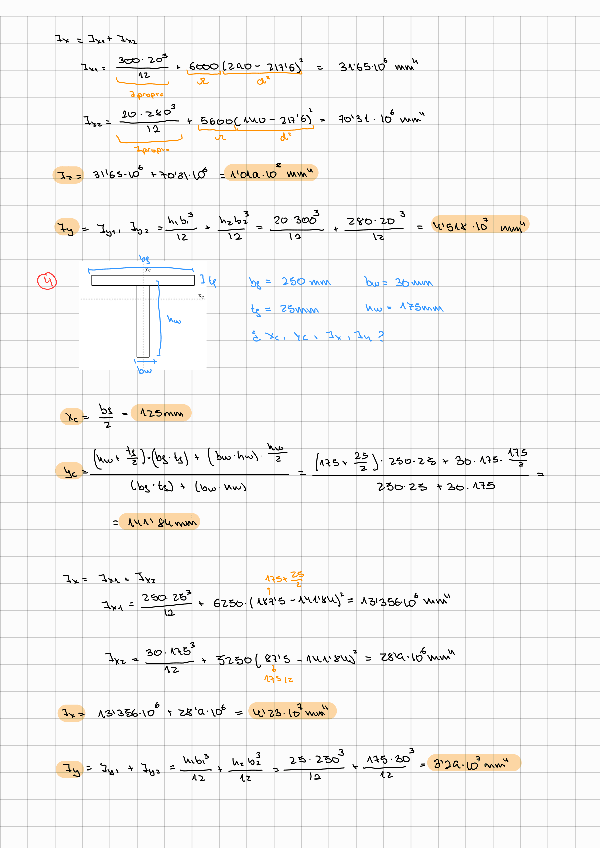 Ix = Ix1 + Ix2
Ix1 = 300·20³/12 + 6000(290 - 217'6)² = 31'65·10⁶ mm⁴
I propro Ω d²
Ix2 = 20·280³/12 + 5600(140 - 217'6)² = 70'31·10⁶ mm⁴
I propro Ω d²
Ix = 31'65·10⁶ + 70'31·10⁶ = 1'019·10⁸ mm⁴
Iy = Iy1, Iy2 = h1b1³/12 + h2b2³/12 = 20 300³/12 + 280·20³/12 = 4'518·10⁷ mm⁴
4
bf
tf
hw
bw
bf = 250 mm bw = 30mm
tf = 25mm hw = 175mm
¿ xc, yc, Ix, Iy ?
xc = bf/2 = 125mm
yc = ((hw + tf/2)·(bf·tf) + (bw·hw) hw/2)/((bf·tf) + (bw·hw)) = ((175 + 25/2)·250·25 + 30·175·175/2)/(250·25 + 30·175) =
= 141'84mm
Ix = Ix1 + Ix2
175+25/2
Ix1 = 250·25³/12 + 6250·(187'5 - 141'84)² = 13'356·10⁶ mm⁴
Ix2 = 30·175³/12 + 5250(87'5 - 141'84)² = 28'9·10⁶ mm⁴
175/2
Ix = 13'356·10⁶ + 28'9·10⁶ = 4'23·10⁷ mm⁴
Iy = Iy1 + Iy2 = h1b1³/12 + h2b2³/12 = 25·250³/12 + 175·30³/12 = 3'29·10⁷ mm⁴